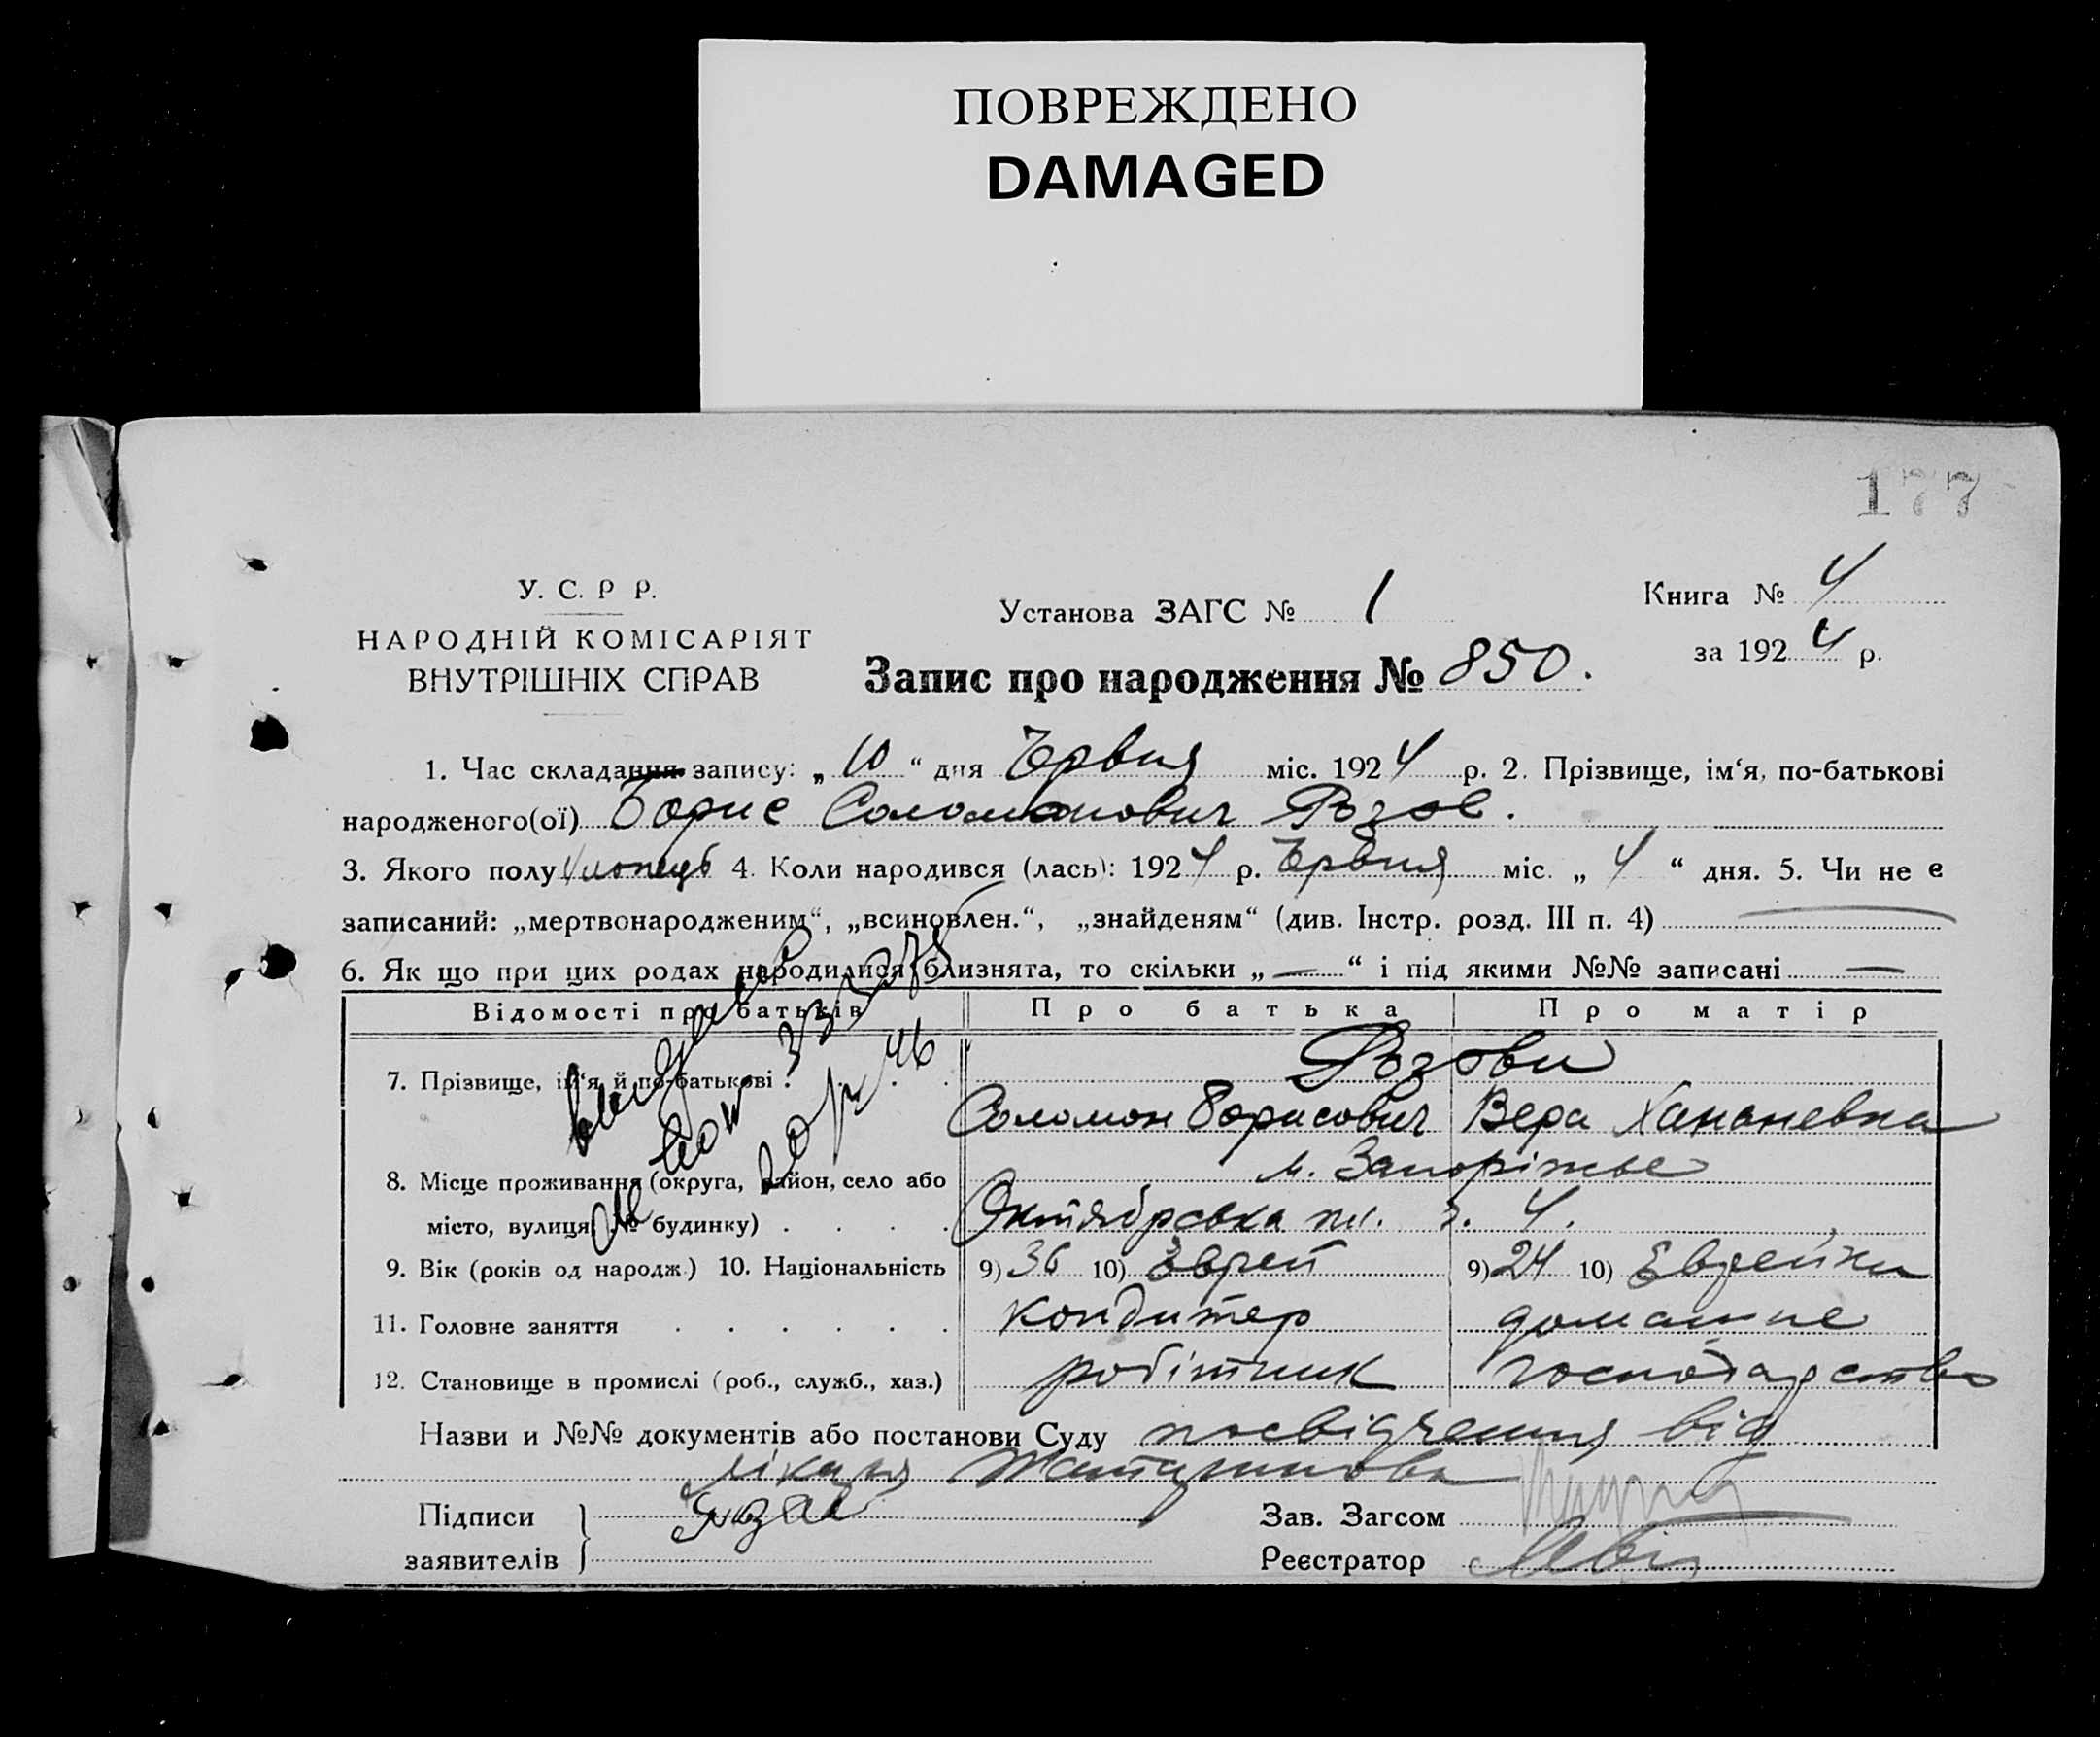 ПОВРЕЖДЕНО
DAMAGED
177
У. С. Р Р.
НАРОДНІЙ КОМІСАРІЯТ
ВНУТРІШНІХ СПРАВ
Установа ЗАГС № 1
Книга № 4
за 1924 р.
Запис про народження № 850.
1. Час складання запису: „10“ дня Червня міс. 1924 р. 2. Прізвище, ім‘я, по-батькові
народженого(ої) Борис Соломонович Розов.
3. Якого полу хлопець 4. Коли народився (лась): 1924 р. Червня міс. „4“ дня. 5. Чи не є
записаний: „мертвонародженим“, „всиновлен.“, „знайденям“ (див. Інстр. розд. III п. 4) —
6. Як що при цих родах народилися близнята, то скільки „—“ і під якими №№ записані —
Відомості про батьків
Про батька
Про матір
7. Прізвище, ім‘я й по-батькові
Розови
Соломон Борисович
Вера Хананевна
8. Місце проживання (округа, район, село або
місто, вулиця, № будинку)
м. Запоріжье
Октябрська пл. 4.
9. Вік (років од народж.) 10. Національність
9) 36 10) Еврей
9) 24 10) Еврейка
11. Головне заняття
кондитер
домашне
12. Становище в промислі (роб., служб., хаз.)
робітник
господарство
Назви и №№ документів або постанови Суду посвідчення від
лікаря
Підписи
заявителів
Зав. Загсом
Реєстратор